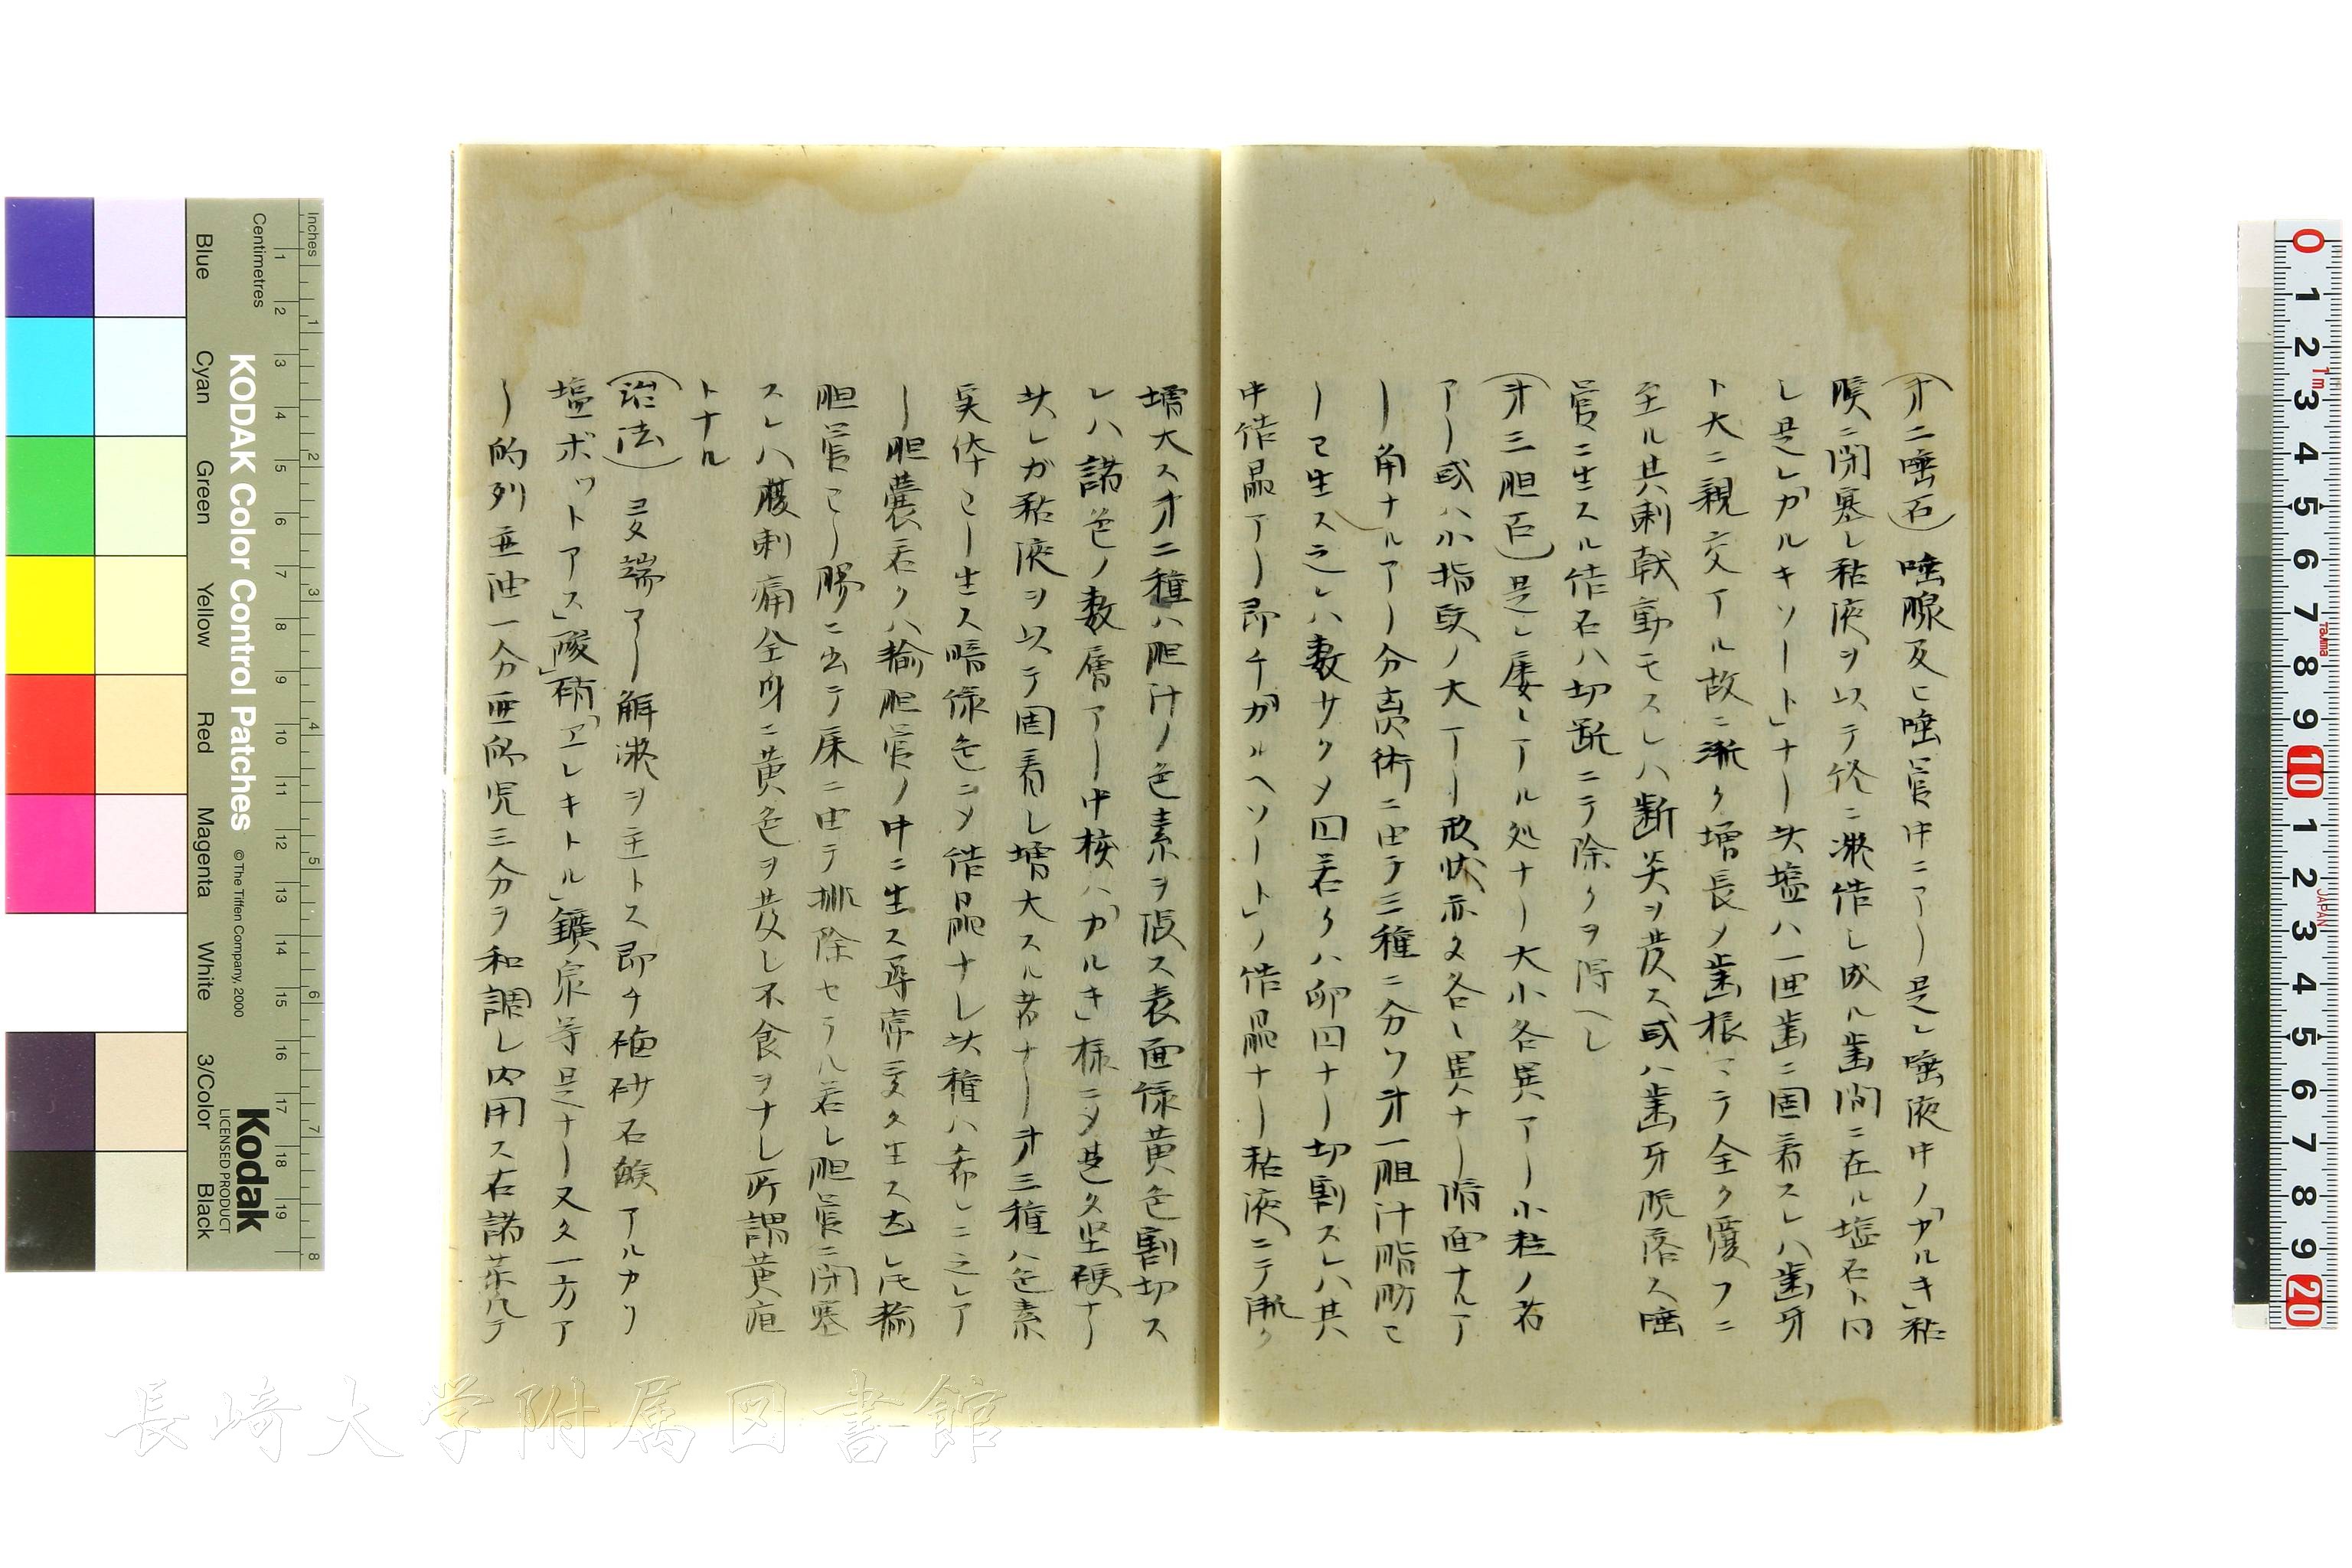 (才二唾石)唾腺及ヒ唾管中ニアリ是レ唾液中ノ「カルキ」粘
膜ニ閉塞シ粘液ヲ以テ終ニ凝結シ成ル歯間ニ在ル塩石ト同
シ是レ「カルキソート」ナリ此塩ハ一回歯ニ固着スレハ歯牙
ト大ニ親交アル故ニ漸ク増長シテ歯根マテ全ク覆フニ
至ル其刺戟動モスレハ断炎ヲ発ス或ハ歯牙脱落ス唾
管ニ生スル結石ハ切断ニテ除クヲ得ヘシ
(才三胆石)是レ屡シアル処ナリ大小各異アリ小粒ノ者
アリ或ハ小指頭ノ大アリ形状亦タ各シ異ナリ隋面ナルア
リ角ナルアリ分売術ニ由テ三種ニ分ツ才一胆汁脂肪ヨ
リ已生ス之レハ数サクメ四若クハ卵四ナリ切割スレハ其
中結晶アリ即チ「ガルヘソート」ノ結晶ナリ粘液ニテ漸ク
増大ス才二種ハ胆汁ノ色素ヲ仮ス表面緑黄色割切ス
レハ諸色ノ数層アリ中核ハ「カルキ」様ニメ甚タ堅硬ナリ
此レガ粘液ヲ以テ固着シ増大スル者ナリ才三種ハ色素
実体ヨリ生ス暗緑色ニメ結晶ナシ此種ハ希レニ之レア
リ胆嚢若クハ輸胆管ノ中ニ生ス尋常交々生ス𪜈輸
胆管ヨリ腸ニ出テ床ニ由テ排除セラル若シ胆管ニ閉塞
スレハ腹刺痛全身ニ黄色ヲ発シ不食ヲナシ所謂黄疸
トナル
(治法) 多端アリ解凝ヲ主トス即チ硇砂石鹸アルカリ
塩ボットアス」酸硝「エレキトル」鑛泉等是ナリ又タ一方ア
リ的列並油一分亜的児三分ヲ和調シ内用ス右諸薬凡テ
Inches
Centimetres
Blue
Cyan
Green
Yellow
Red
Magenta
White
3/Color
Black
KODAK Color Control Patches
© The Tiffen Company, 2000
Kodak
LICENSED PRODUCT
JAPAN
長崎大学附属図書館